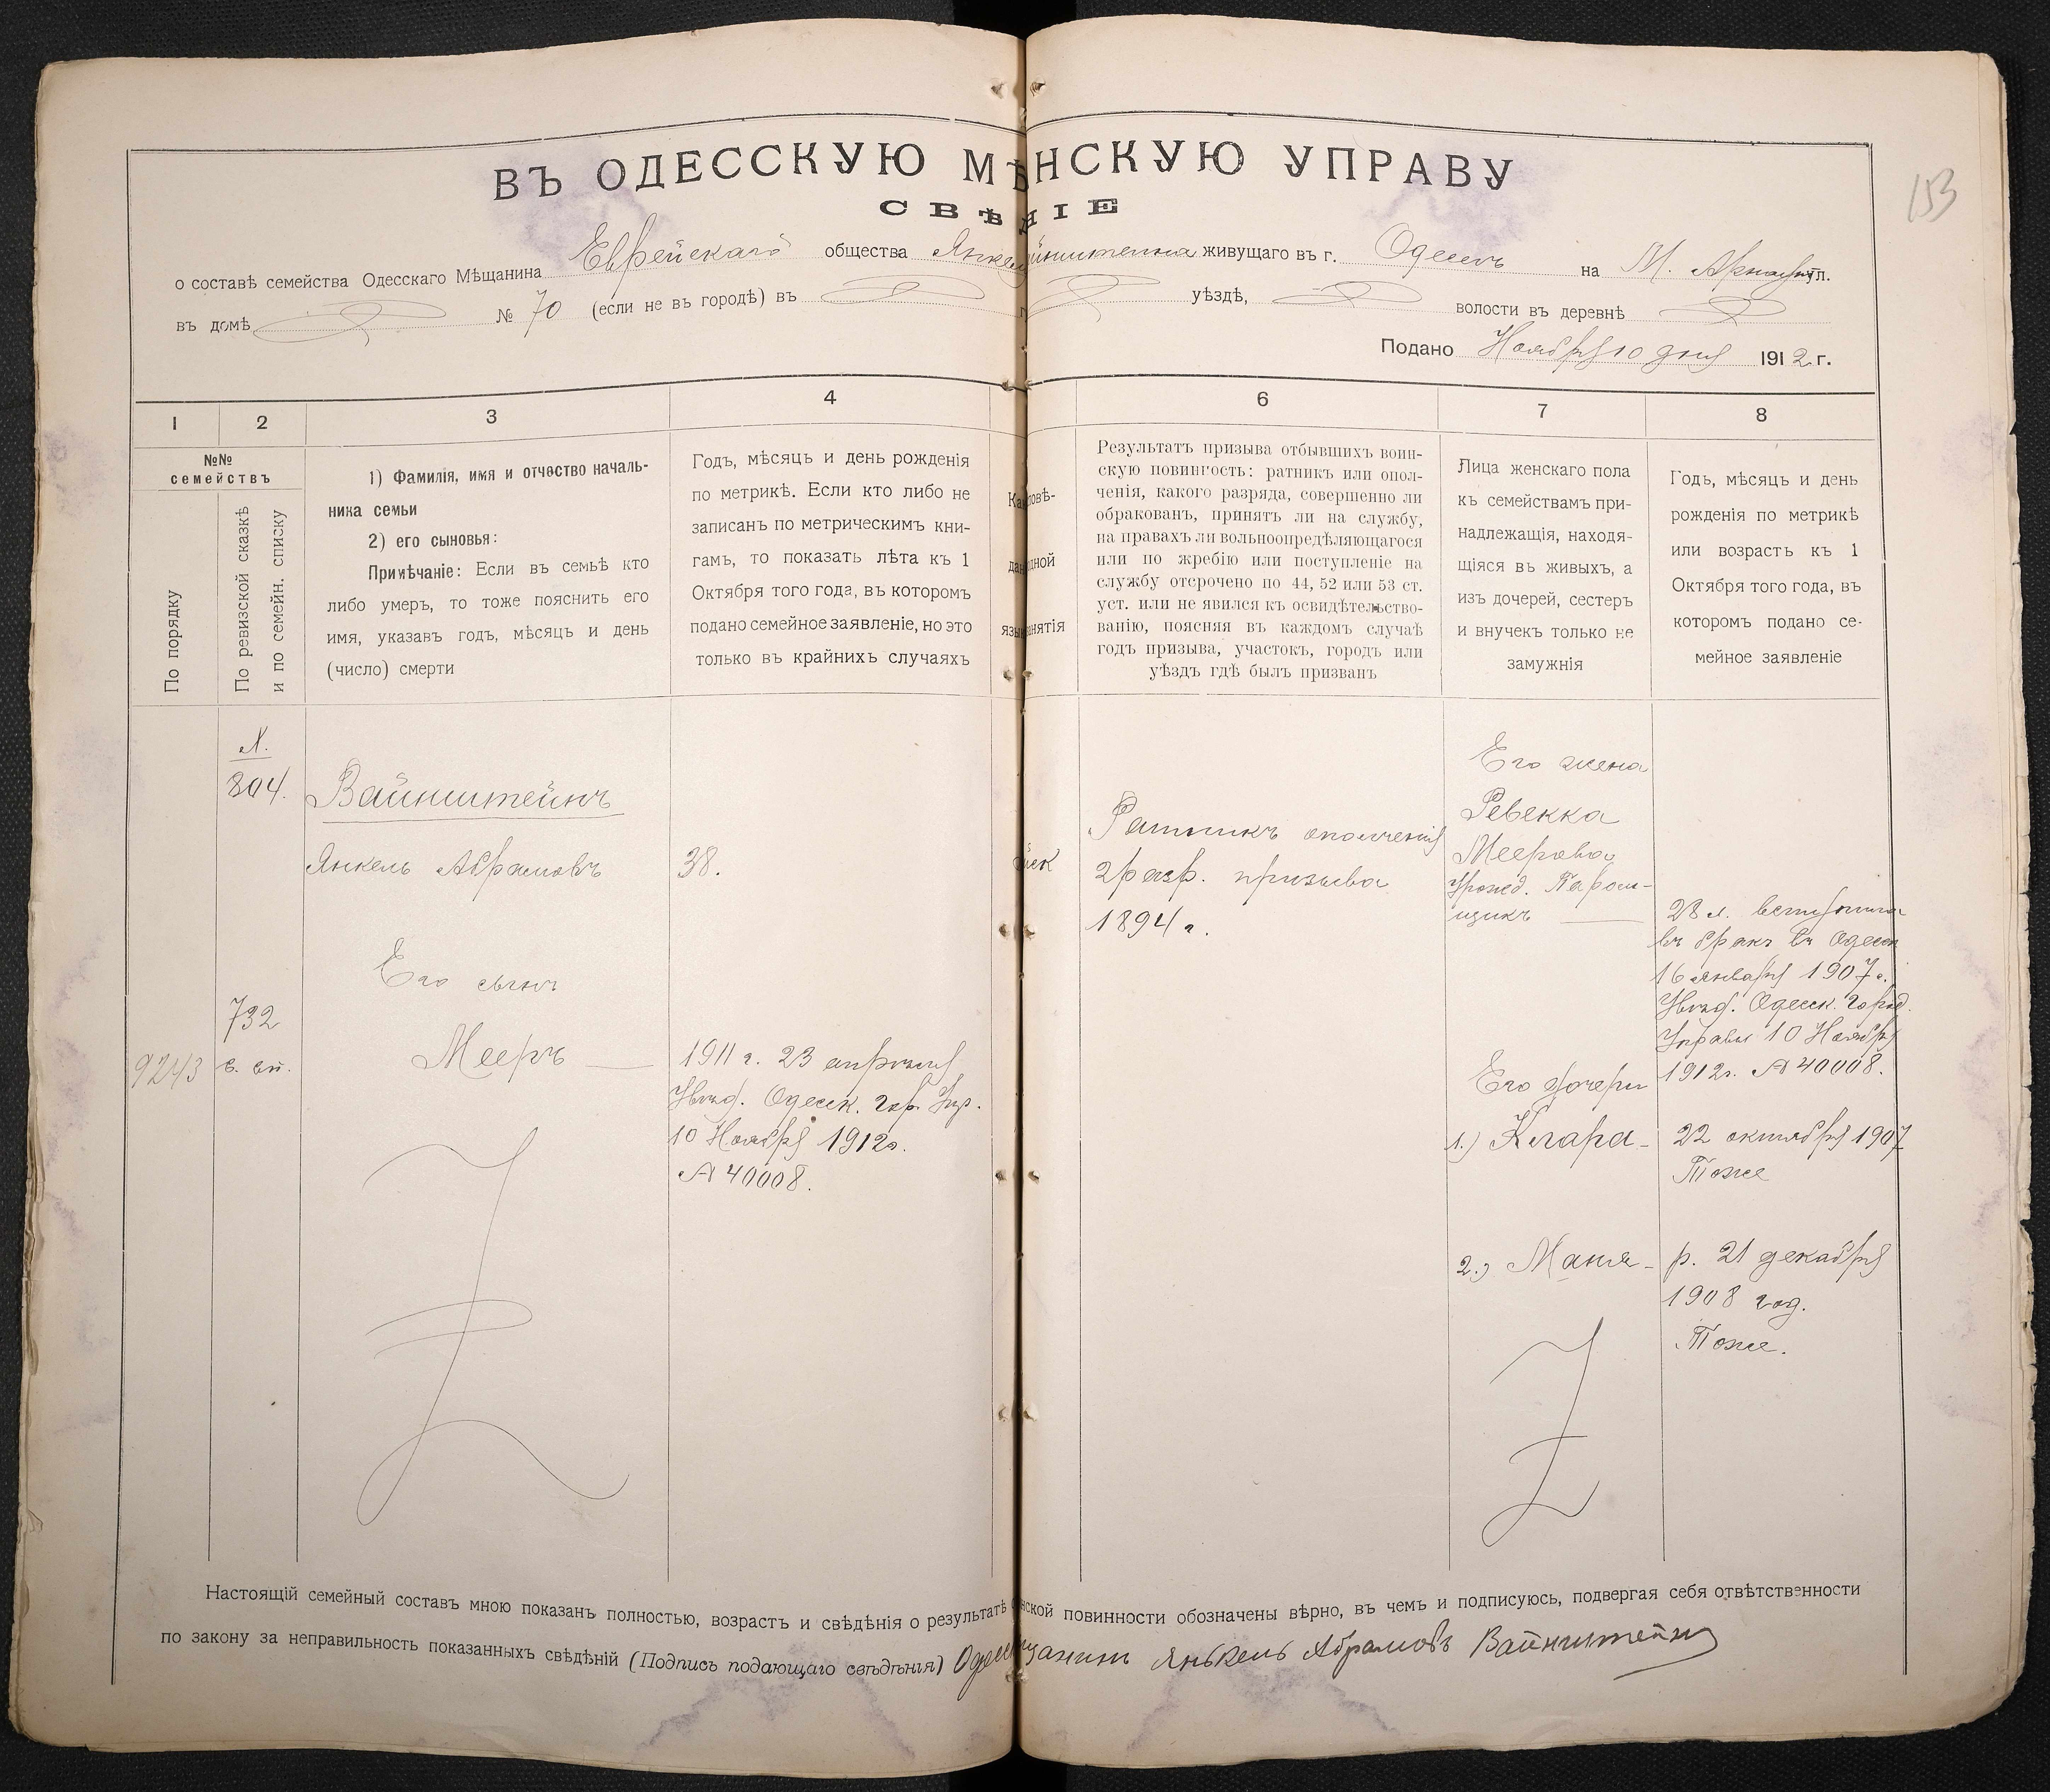 153
ВЪ ОДЕССКУЮ МѢНСКУЮ УПРАВУ
СВѢНІЕ
о составѣ семейства Одесскаго Мѣщанина Еврейскаго общества Янкел йнштейна живущаго въ г. Одессѣ на М. Арнаутул.
въ домѣ № 70 (если не въ городѣ) въ уѣздѣ, волости въ деревнѣ
Подано Ноября 10 дня 1912 г.
1 2 3 4 6 7 8
№№ семействъ
По порядку
По ревизской сказкѣ
и по семейн. списку
1) Фамилія, имя и отчество началь-
ника семьи
2) его сыновья:
Примѣчаніе: Если въ семьѣ кто
либо умеръ, то тоже пояснить его
имя, указавъ годъ, мѣсяцъ и день
(число) смерти
Годъ, мѣсяцъ и день рожденія
по метрикѣ. Если кто либо не
записанъ по метрическимъ кни-
гамъ, то показать лѣта къ 1
Октября того года, въ которомъ
подано семейное заявленіе, но это
только въ крайнихъ случаяхъ
Ка овѣ-
дан дной
язы анятія
Результатъ призыва отбывшихъ воин-
скую повинность: ратникъ или опол-
ченія, какого разряда, совершенно ли
обракованъ, принятъ ли на службу,
на правахъ ли вольноопредѣляющагося
или по жребію или поступленіе на
службу отсрочено по 44, 52 или 53 ст.
уст. или не явился къ освидѣтельство-
ванію, поясняя въ каждомъ случаѣ
годъ призыва, участокъ, городъ или
уѣздъ гдѣ былъ призванъ
Лица женскаго пола
къ семействамъ при-
надлежащія, находя-
щіяся въ живыхъ, а
изъ дочерей, сестеръ
и внучекъ только не
замужнія
Годъ, мѣсяцъ и день
рожденія по метрикѣ
или возрастъ къ 1
Октября того года, въ
которомъ подано се-
мейное заявленіе
804.
Вайнштейнъ
Янкель Абрамовъ
38.
Ратникъ ополченія
2 разр. призыва
1894 г.
Его жена
Ревекка
Меерова
урожд. Паром-
щикъ
28 л. вступила
въ бракъ въ Одессѣ
16 января 1907 г.
Удост. Одесск. Город.
Управы 10 Ноября
1912 г. № 40008.
Его сынъ
732
9243
Мееръ
1911 г. 23 апрѣля
Удост. Одесск. гор. Упр.
10 Ноября 1912 г.
№ 40008.
Его дочери
1.) Клара - 22 октября 1907
Тоже
2.) Маня - р. 21 декабря
1908 год.
Тоже.
Настоящій семейный составъ мною показанъ полностью, возрастъ и свѣдѣнія о результатѣ нской повинности обозначены вѣрно, въ чемъ и подписуюсь, подвергая себя отвѣтственности
по закону за неправильность показанныхъ свѣдѣній (Подпись подающаго свѣдѣнія) Одес щанинъ Янькель Абрамовъ Вайнштейнъ